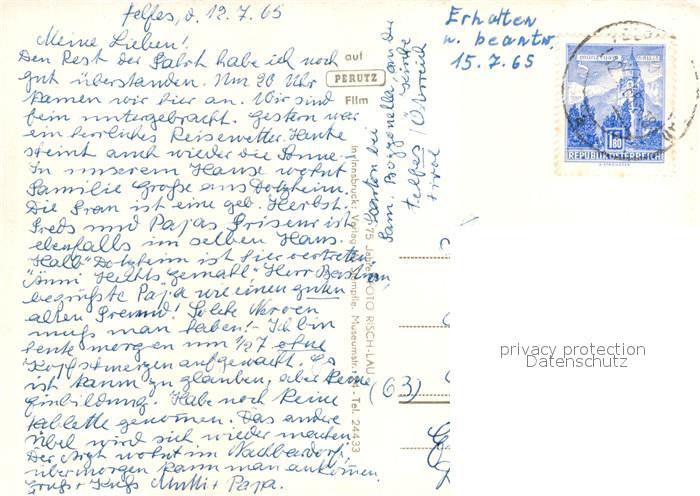 Telfes, d. 12.7.65
Meine Lieben!
Den Rest der Fahrt habe ich noch
gut überstanden. Um 20 Uhr
kamen wir hier an. Wir sind
fein untergebracht. Gestern war
ein herrliches Reisewetter. Heute
scheint auch wieder die Sonne –
In unserem Hause wohnt
Familie Große aus Dotzheim.
Die Frau ist eine geb. Herbst.
Freds und Papas Friseur ist
ebenfalls im selben Haus.
Halb Dotzheim ist hier vertreten
"Änni Hechts Gemahl" Herr
begrüßte Papa wie einen guten
alten Freund! Solche Nerven
muß man haben! – Ich bin
heute morgen um 1/2 7 ohne
Kopfschmerzen aufgewacht. Es
ist kaum zu glauben, aber keine
Einbildung. Habe noch keine
Tablette genommen. Das andere
Übel wird sich wieder machen
Der Arzt wohnt im Nachbardorf,
übermorgen kann man ankommen
Gruß + Kuß Mutti + Papa.
auf
PERUTZ
Film
In Innsbruck: Verlag
Museumstr.
Tel. 24433
75 Jahre FOTO RISCH-LAU
bei
Fam. an der
Telfes / Österreich
Kirche
Tirol
Erhalten
u. beantw.
15.7.65
(63)
MÜNZTURM HALL
1.80
REPUBLIK ÖSTERREICH
privacy protection
Datenschutz